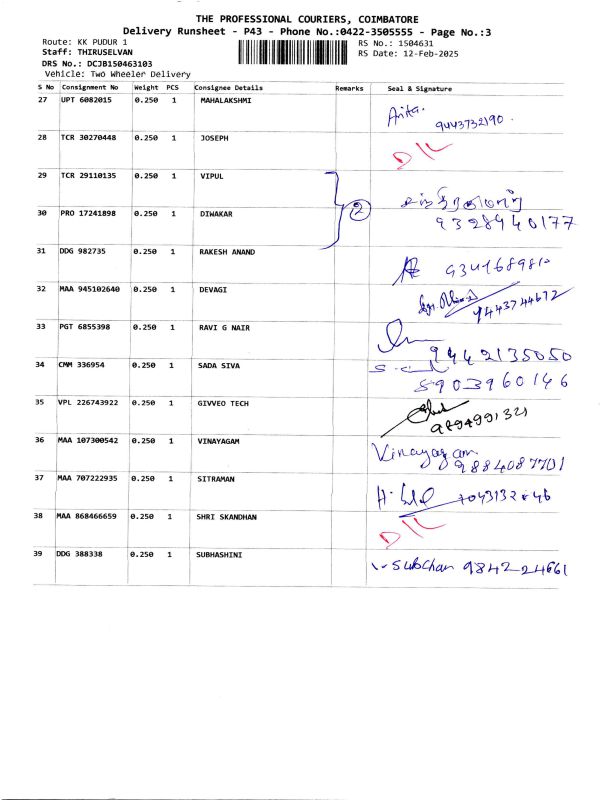 THE PROFESSIONAL COURIERS, COIMBATORE
Delivery Runsheet - P43 - Phone No.:0422-3505555 - Page No.:3
Route: KK PUDUR 1 RS No.: 1504631
Staff: THIRUSELVAN RS Date: 12-Feb-2025
DRS No.: DCJB150463103
Vehicle: Two Wheeler Delivery
S No Consignment No Weight PCS Consignee Details Remarks Seal & Signature
27 UPT 6082015 0.250 1 MAHALAKSHMI
Anita.
9443732190.
28 TCR 30270448 0.250 1 JOSEPH
D/L
29 TCR 29110135 0.250 1 VIPUL
2
30 PRO 17241898 0.250 1 DIWAKAR
9328940177
31 DDG 982735 0.250 1 RAKESH ANAND
32 MAA 945102640 0.250 1 DEVAGI
9443744672
33 PGT 6855398 0.250 1 RAVI G NAIR
9442135050
34 CMM 336954 0.250 1 SADA SIVA
5903960146
35 VPL 226743922 0.250 1 GIVVEO TECH
9894991321
36 MAA 107300542 0.250 1 VINAYAGAM
Vinayagam
9884087701
37 MAA 707222935 0.250 1 SITRAMAN
38 MAA 868466659 0.250 1 SHRI SKANDHAN
D/L
39 DDG 388338 0.250 1 SUBHASHINI
Subchan 9842224661